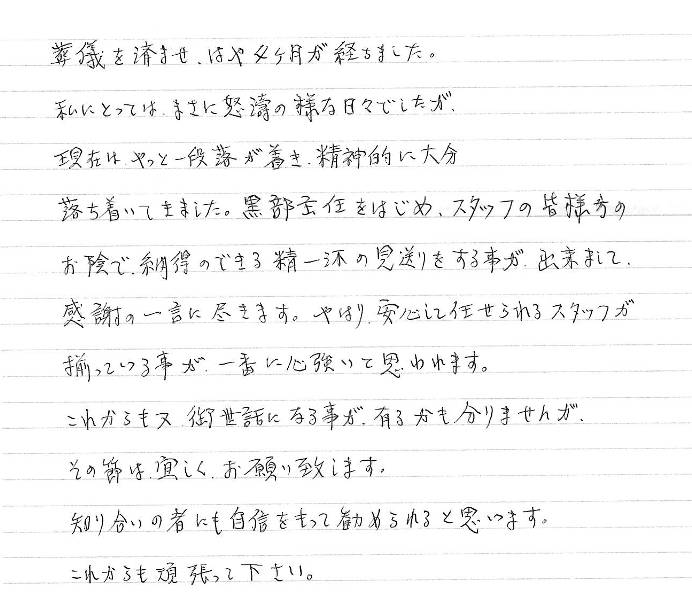 葬儀を済ませ、はや4ヶ月が経ちました。
私にとっては、まさに怒濤の様な日々でしたが、
現在は、やっと一段落が着き、精神的に大分
落ち着いてきました。黒部主任をはじめ、スタッフの皆様方の
お陰で、納得のできる精一杯の見送りをする事が、出来まして、
感謝の一言に尽きます。やはり、安心して任せられるスタッフが
揃っている事が、一番に心強いと思われます。
これからも又、御世話になる事が、有るかも分りませんが、
その節は、宜しく、お願い致します。
知り合いの者にも自信をもって勧められると思います。
これからも頑張って下さい。